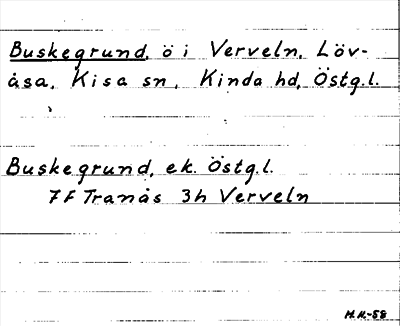 Buskegrund, ö i Verveln, Löv-
åsa, Kisa sn, Kinda hd, Östg.l.
Buskegrund, ek. Östg.l.
7F Tranås 3h Verveln
M.H.-58